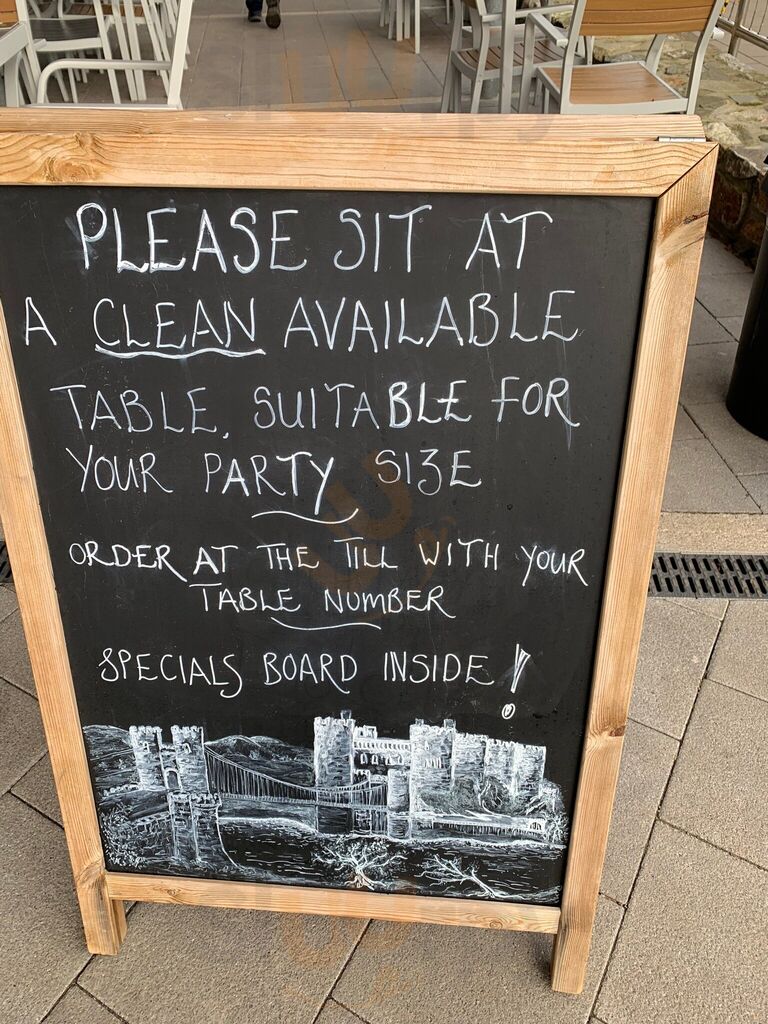 PLEASE SIT AT
A CLEAN AVAILABLE
TABLE, SUITABLE FOR
YOUR PARTY SIZE
ORDER AT THE TILL WITH YOUR
TABLE NUMBER
SPECIALS BOARD INSIDE!